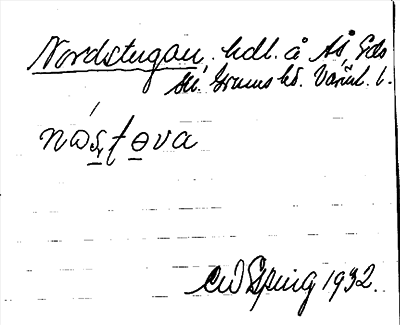 Nordstugan, hdl. å Ås, Eds
sn. Grums hd. Värml. l.
nó̀ṣṭo̱va
CW Spring 1932.